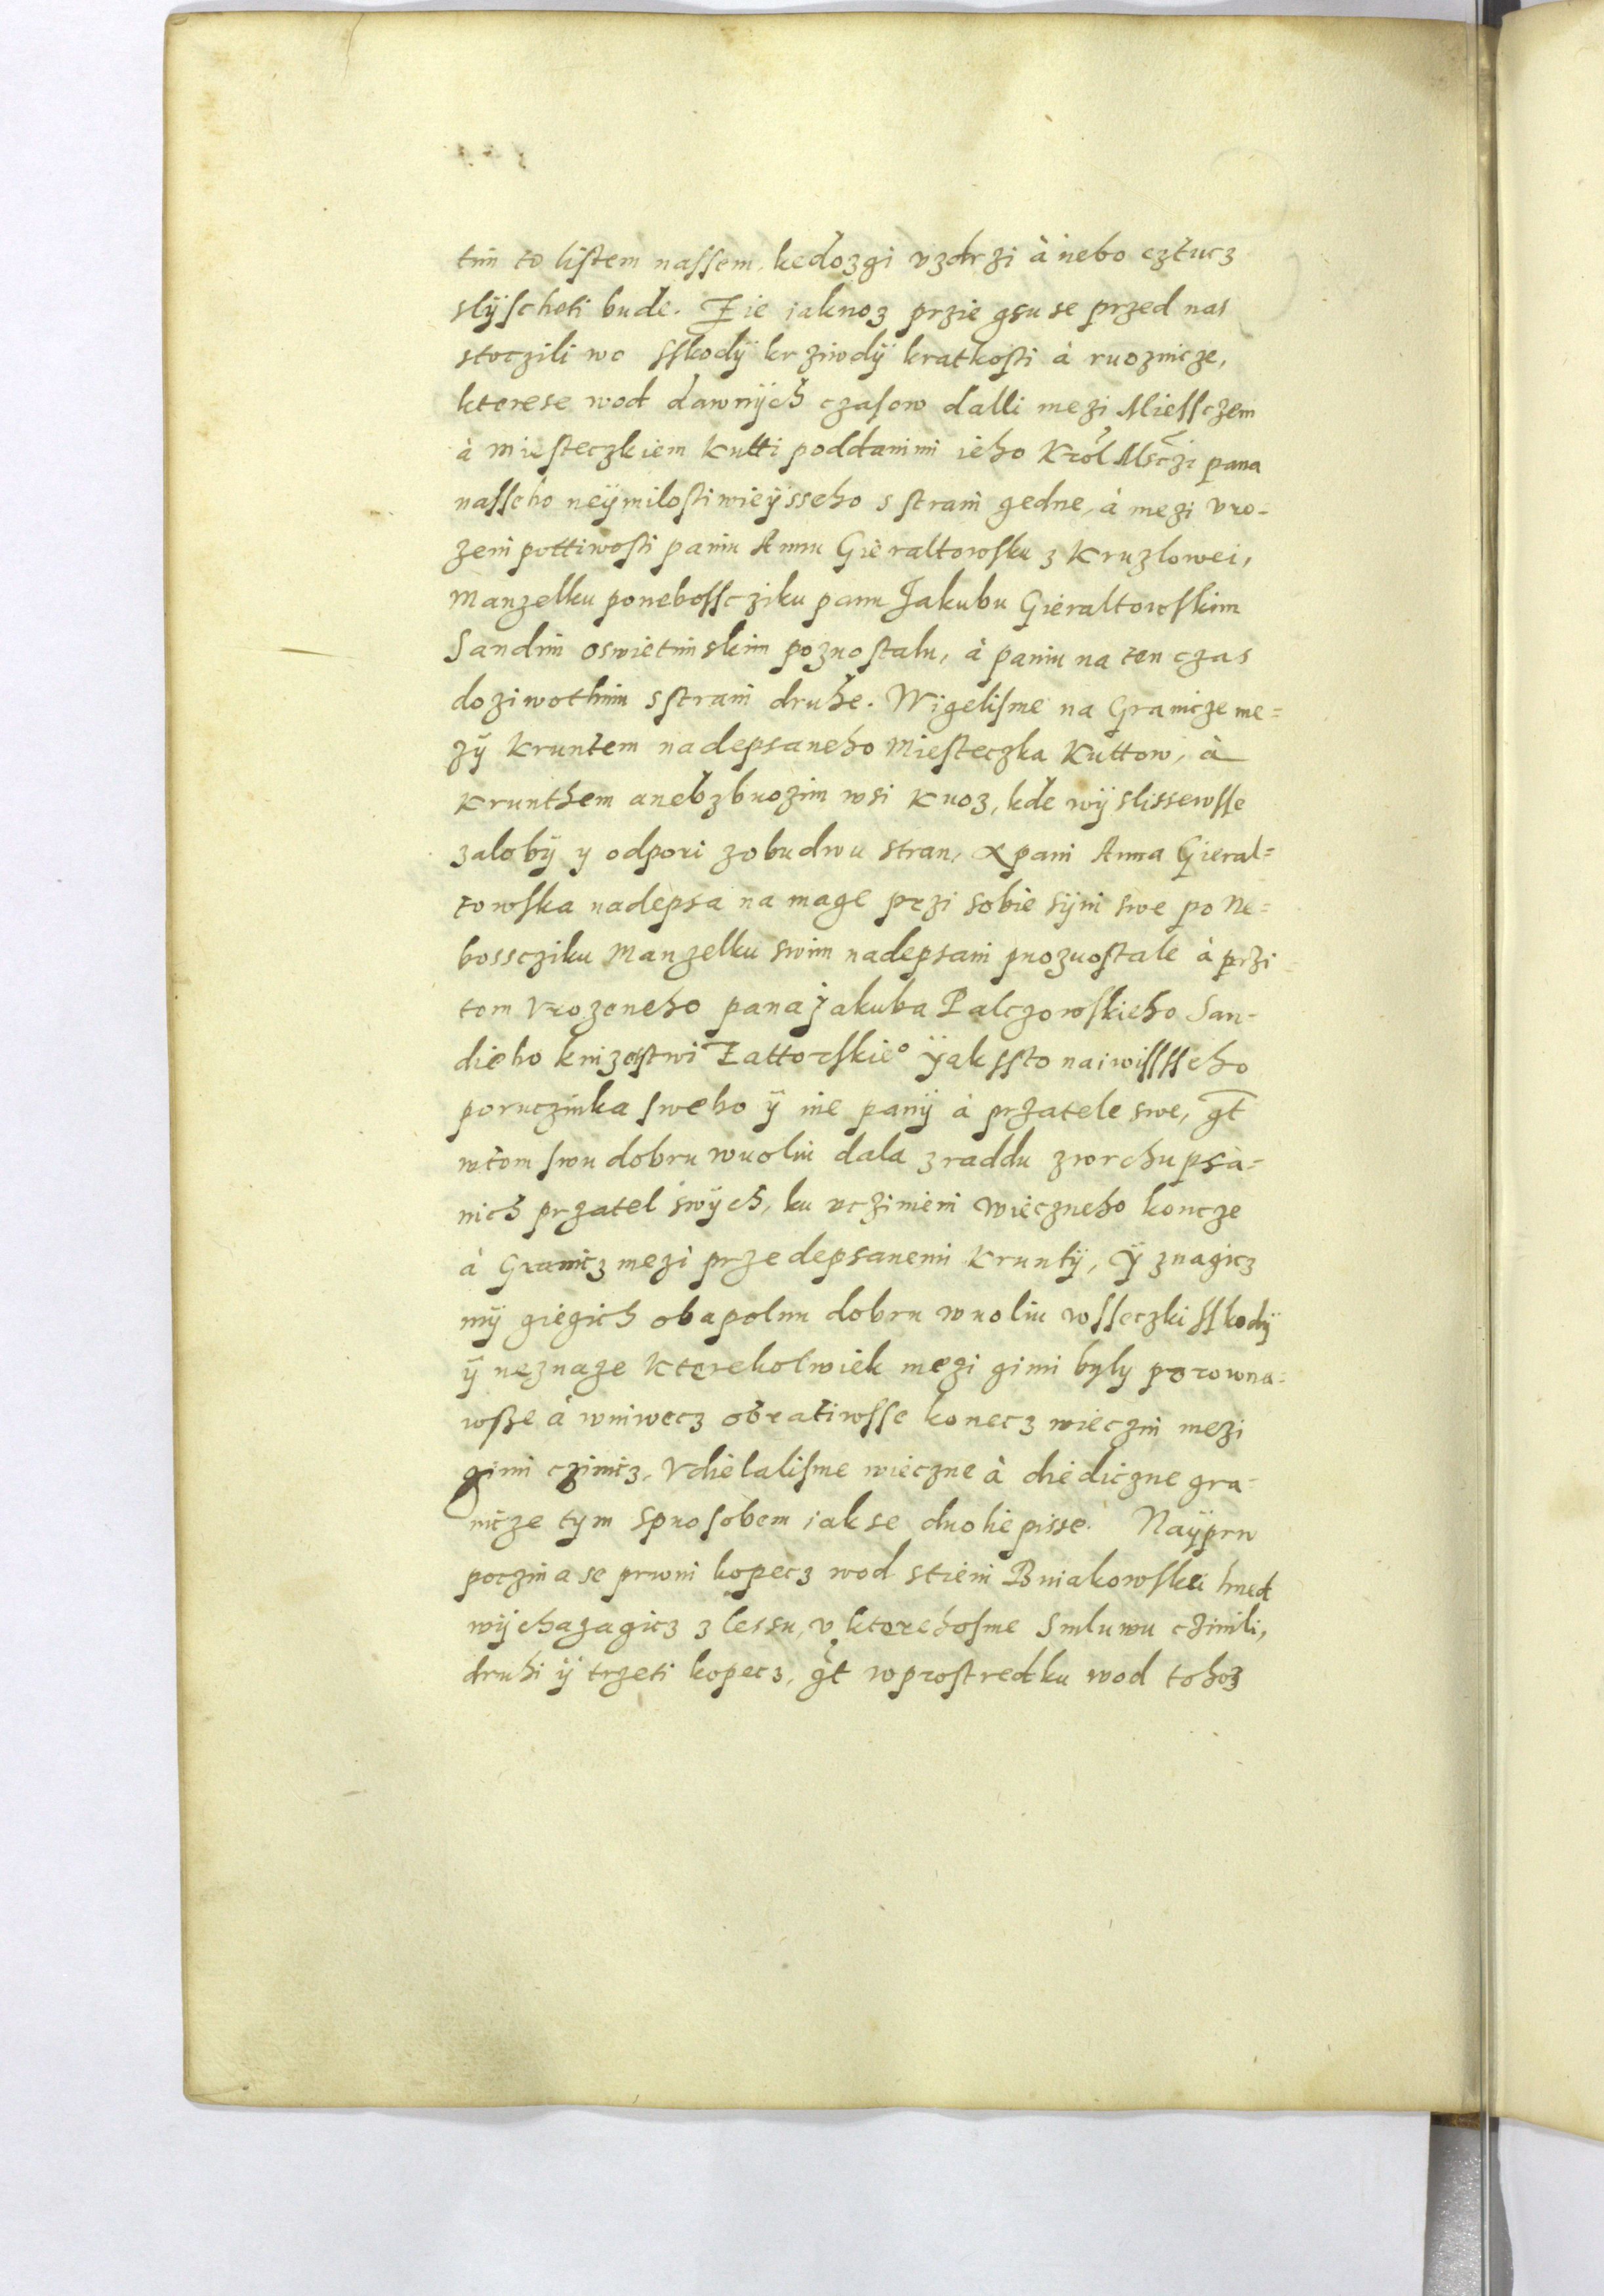 tim to listem nassem, kedozgi vzdrzi à nebo cztucz
slÿscheti bude. Zie iaknoz przie gsu se przed nas
stoczili wo sskodÿ krziwdÿ kratkosti à ruoznicze,
kterese wod dawnÿch czasow dalli mezi Miessczem
à Miesteczkiem Kutti poddanimi ieho Krol Msczi pana
nasseho neÿmilostiwieÿsseho s strani gedne, à mezi vro-
zeni pottiwosti paniu Annu Gieraltowsku z Kruzlowei,
Manzelku ponebossciku panu Jakubu Gieraltowskim
Sandim oswietimskim pozuostalu, à paniu na ten czas
doziwothnim s strani druhe. Wigelisme na Granicze me=
zÿ Kruntem nadepsaneho Miesteczka Kuttow, à
Krunthem anebzbuozim wsi Kuoz, kde wÿslissewsse
zalobÿ y odpori zobudwu stran, A pani Anna Gieral=
towska nadepsa na mage przi sobie sÿni swe po Ne=
bosscziku Manzelku swim nadepsani puozuostale à przi
tom Vrozeneho pana Jakuba Palczowskieho San-
dieho knizestwi Zattorskie° ÿakssto naiwissseho
poruczinka sweho ÿ ine panÿ à przatele swe, gt
wtom swu dobru wuoliu dala zraddu zworchu psa=
nich przatel swÿch, ku vczinieni wieczneho koncze
à Granicz mezi przedepsanemi Kruntÿ, Ÿ znagicz
mÿ giegich obapolnu dobru wuoliu wsseczki sskodÿ
ÿ neznaze Kterekolwiek mezi gimi byly porowna=
wsze à wniwecz obratiwsse konecz wieczni mezi
gimi czinicz, Vdielalisme wieczne à diediczne gra-
nicze tym spuosobem iak se duolie pisse. Naÿprw
poczina se prwni kopecz wod stieni Bniakowskei hned
wÿchazagicz z lessu, v ktorehosme Smluwu czinili,
druhi ÿ trzeti kopecz, gt wprostredku wod tohoz